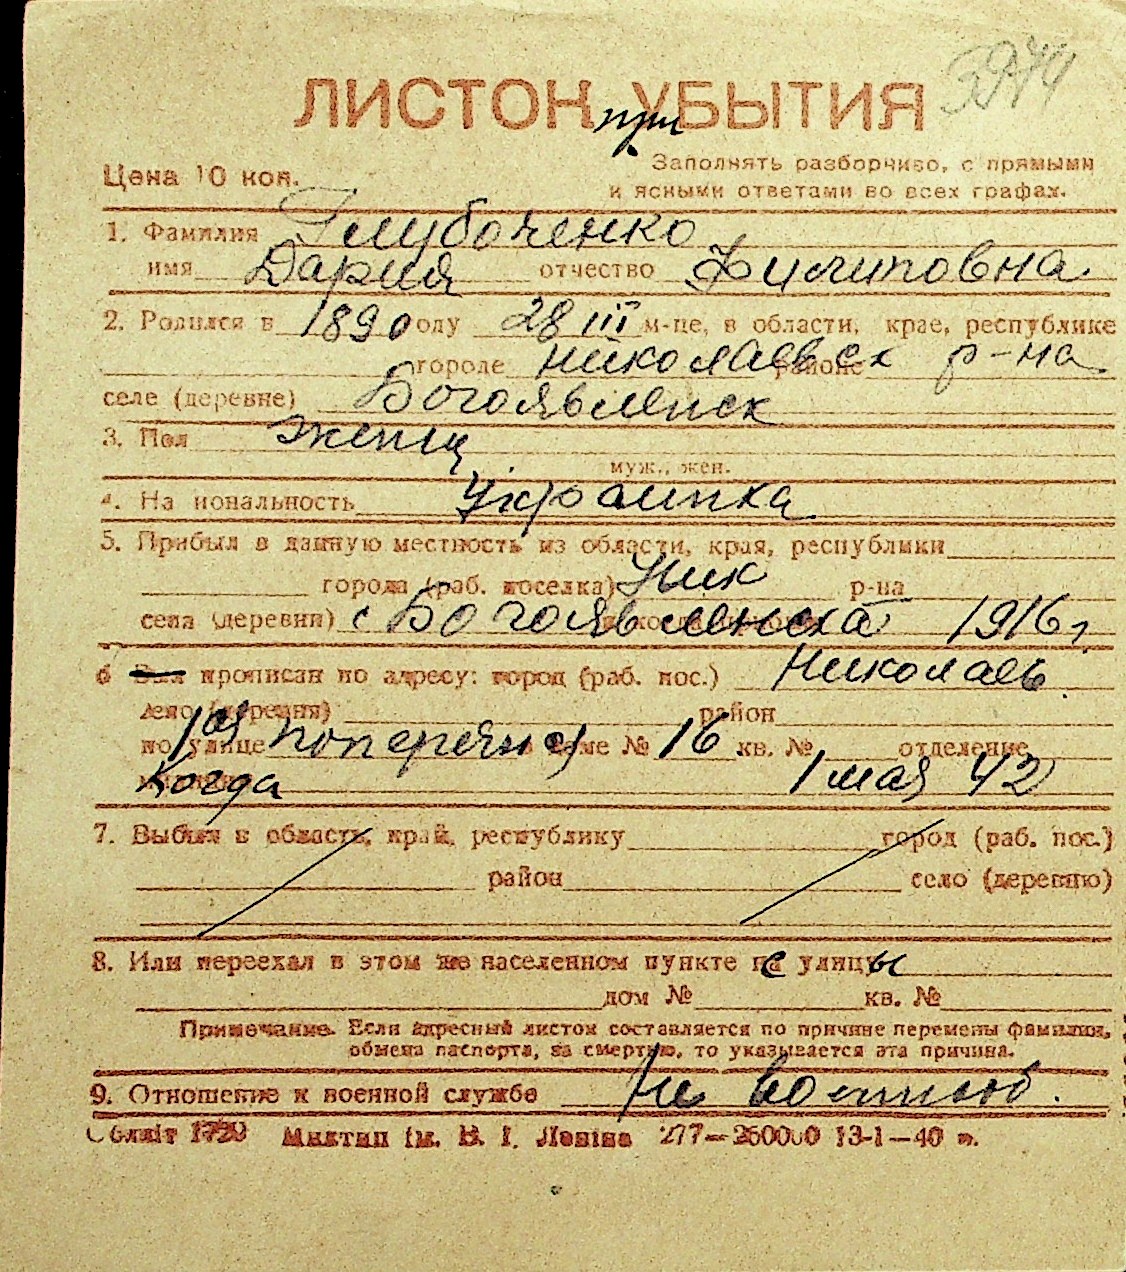 3974
ЛИСТОК при УБЫТИЯ
Цена 10 коп.
Заполнять разборчиво, с прямыми
и ясными ответами во всех графах.
1. Фамилия Глубоченко
имя Дария отчество Филиповна
2. Родился в 1890 году 28 III м-це, в области, крае, республике
городе Николаевск районе р-на
селе (деревне) Богоявленск
3. Пол женщ
муж., жен.
4. Национальность Украинка
5. Прибыл в данную местность из области, края, республики
города (раб. поселка) Ник р-на
села (деревни) с Богоявленска 1916 г.
6 Был прописан по адресу: город (раб. пос.) Николаев
село (деревня) район
по улице 1ая поперечн в доме № 16 кв. № отделение
Когда 1 мая 42
7. Выбыл в область, край, республику город (раб. пос.)
район село (деревню)
8. Или переехал в этом же населенном пункте с улицы
дом № кв. №
Примечание. Если адресный листок составляется по причине перемены фамилии,
обмена паспорта, за смертью, то указывается эта причина.
9. Отношение к военной службе Не военнооб.
Облліт 1729 Миктип ім. В. І. Леніна 277—250000 13-1—40 п.